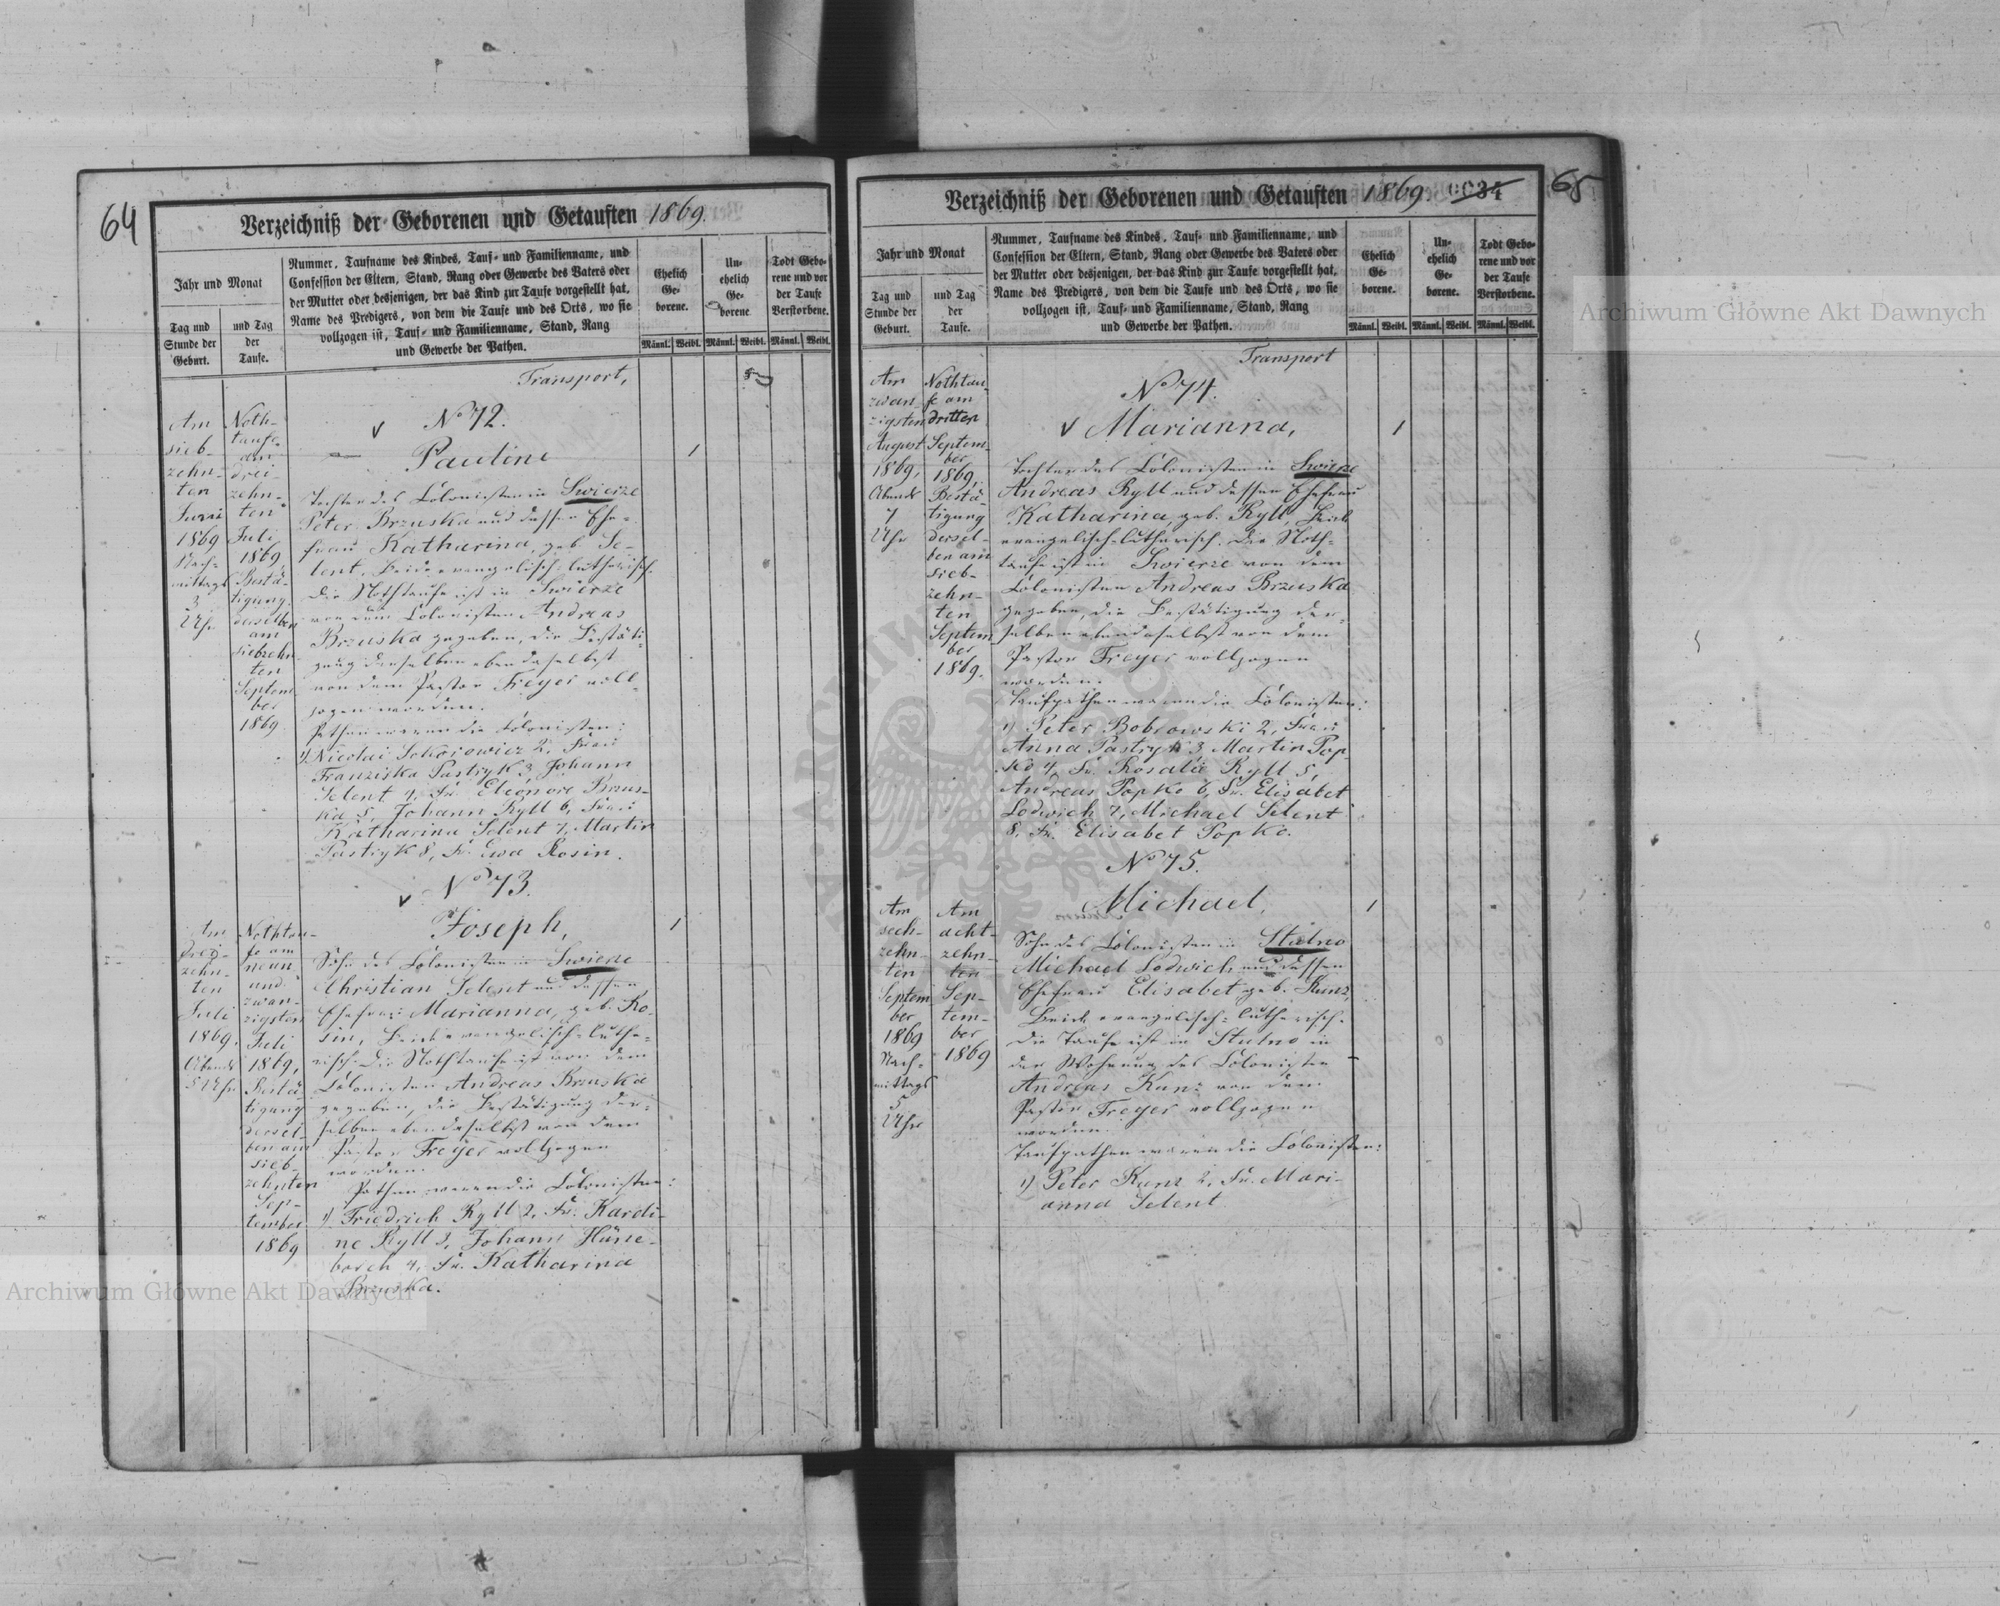 64
Verzeichniß der Geborenen und Getauften 1869.
Jahr und Monat
Tag und
Stunde der
Geburt.
und Tag
der
Taufe.
Nummer, Taufname des Kindes, Tauf- und Familienname, und
Confession der Eltern, Stand, Rang oder Gewerbe des Vaters oder
der Mutter oder desjenigen, der das Kind zur Taufe vorgestellt hat,
Name des Predigers, von dem die Taufe und des Orts, wo sie
vollzogen ist, Tauf- und Familienname, Stand, Rang
und Gewerbe der Pathen.
Ehelich
Ge-
borene.
Un-
ehelich
Ge-
borene
Todt Gebo-
rene und vor
der Taufe
Verstorbene.
Männl. Weibl. Männl. Weibl. Männl. Weibl.
Transport,
Am
sieb-
zehn-
ten
Junii
1869
Nach-
mittags
3
Uhr
Noth-
taufe
am
drei-
zehn-
ten
Juli
1869,
Bestä-
tigung
derselben
am
siebzehn-
ten
Septem-
ber
1869.
No 72.
Pauline
1
Tochter des Colonisten in Swierze
Peter Brzuska und dessen Ehe-
frau Katharina, geb. Se-
lent, Beide evangelisch-lutherisch.
Die Nothtaufe ist in Swierze
von dem Colonisten Andreas
Brzuska gegeben, die Bestäti-
gung derselben ebendaselbst
von dem Pastor Freyer voll-
zogen worden.
Pathen waren die Colonisten:
1, Nicolai Sokosowicz 2, Frau
Franziska Pastryk 3, Johann
Selent 4, Fr. Eleonore Brzus-
ka 5, Johann Ryll 6, Frau
Katharina Selent 7, Martin
Pastryk 8, Fr. Ewa Rosin.
Am
drei-
zehn-
ten
Juli
1869.
Abends
5 Uhr
Nothtau-
fe am
neun
und
zwan-
zigsten
Juli
1869,
Bestä-
tigung
dersel-
ben am
sieb-
zehnten
Sep-
tember
1869
No 73.
Joseph,
1
Sohn des Colonisten in Swierze
Christian Selent und dessen
Ehefrau Marianna, geb. Ro-
sin, Beide evangelisch-luthe-
risch. Die Nothtaufe ist von dem
Colonisten Andreas Brzuska
gegeben, die Bestätigung der-
selben ebendaselbst von dem
Pastor Freyer vollzogen
worden.
Pathen waren die Colonisten:
1, Friedrich Ryll 2, Fr. Karoli-
ne Ryll 3, Johann
4, Fr. Katharina
Brzuska.
65
Verzeichniß der Geborenen und Getauften 1869. 34
Jahr und Monat
Tag und
Stunde der
Geburt.
und Tag
der
Taufe.
Nummer, Taufname des Kindes, Tauf- und Familienname, und
Confession der Eltern, Stand, Rang oder Gewerbe des Vaters oder
der Mutter oder desjenigen, der das Kind zur Taufe vorgestellt hat,
Name des Predigers, von dem die Taufe und des Orts, wo sie
vollzogen ist, Tauf- und Familienname, Stand, Rang
und Gewerbe der Pathen.
Ehelich
Ge-
borene.
Un-
ehelich
Ge-
borene.
Todt Gebo-
rene und vor
der Taufe
Verstorbene.
Männl. Weibl. Männl. Weibl. Männl. Weibl.
Transport
Am
zwan-
zigsten
August
1869,
Abends
7
Uhr
Nothtau-
fe am
dritten
Septem-
ber
1869,
Bestä-
tigung
dersel-
ben am
sieb-
zehn-
ten
Septem-
ber
1869.
No 74.
Marianna,
1
Tochter des Colonisten in Swierze
Andreas Ryll und dessen Ehefrau
Katharina, geb. Ryll, Beide
evangelisch-lutherisch. Die Noth-
taufe ist in Swierze von dem
Colonisten Andreas Brzuska
gegeben, die Bestätigung der-
selben ebendaselbst von dem
Pastor Freyer vollzogen
worden.
Taufpathen waren die Colonisten:
1, Peter Bobrowski 2, Frau
Anna Pastryk 3, Martin Pop-
ko 4, Fr. Rosalie Ryll 5,
Andreas Popko 6, Fr. Elisabet
Lodwich 7, Michael Selent
8, Fr. Elisabet Popko.
Am
sech-
zehn-
ten
Septem-
ber
1869
Nach-
mittags
5
Uhr
Am
acht-
zehn-
ten
Sep-
tem-
ber
1869
No 75.
Michael,
1
Sohn des Colonisten in Stulno
Michael Lodwich und dessen
Ehefrau Elisabet geb. Kunz,
Beide evangelisch-lutherisch.
Die Taufe ist in Stulno in
der Wohnung des Colonisten
Andreas Kunz von dem
Pastor Freyer vollzogen
worden.
Taufpathen waren die Colonisten:
1, Peter Kunz 2, Fr. Mari-
anna Selent
Archiwum Główne Akt Dawnych
Archiwum Główne Akt Dawnych